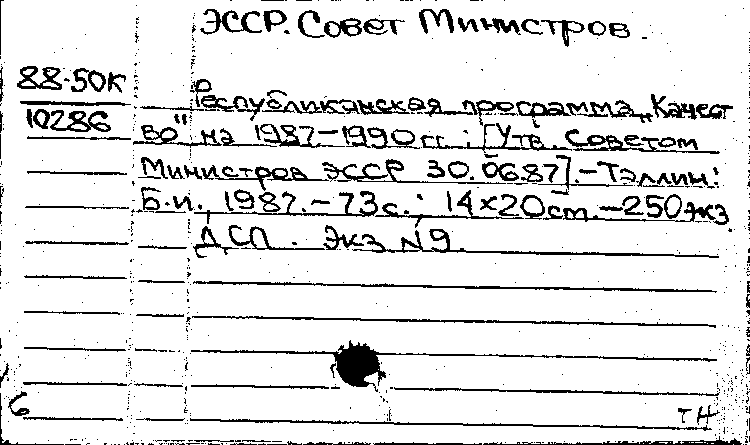 ЭССР. Совет Министров.
88-50К
10286
Республиканская программа „Качест
во" на 1987-1990 гг.: [Утв. Советом
Министров ЭССР 30.06.87].-Таллин:
Б.и., 1987.-73с.; 14×20 cm.-250экз.
ДСП. Экз N9.
6
ТН